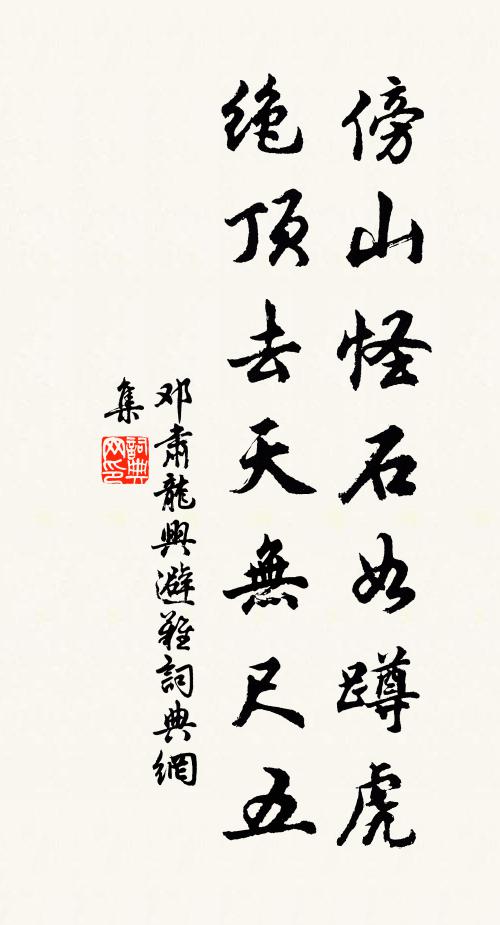 傍山怪石如蹲虎
绝顶去天無尺五
邓肅龍興避難詞典網
集
詞典
网印